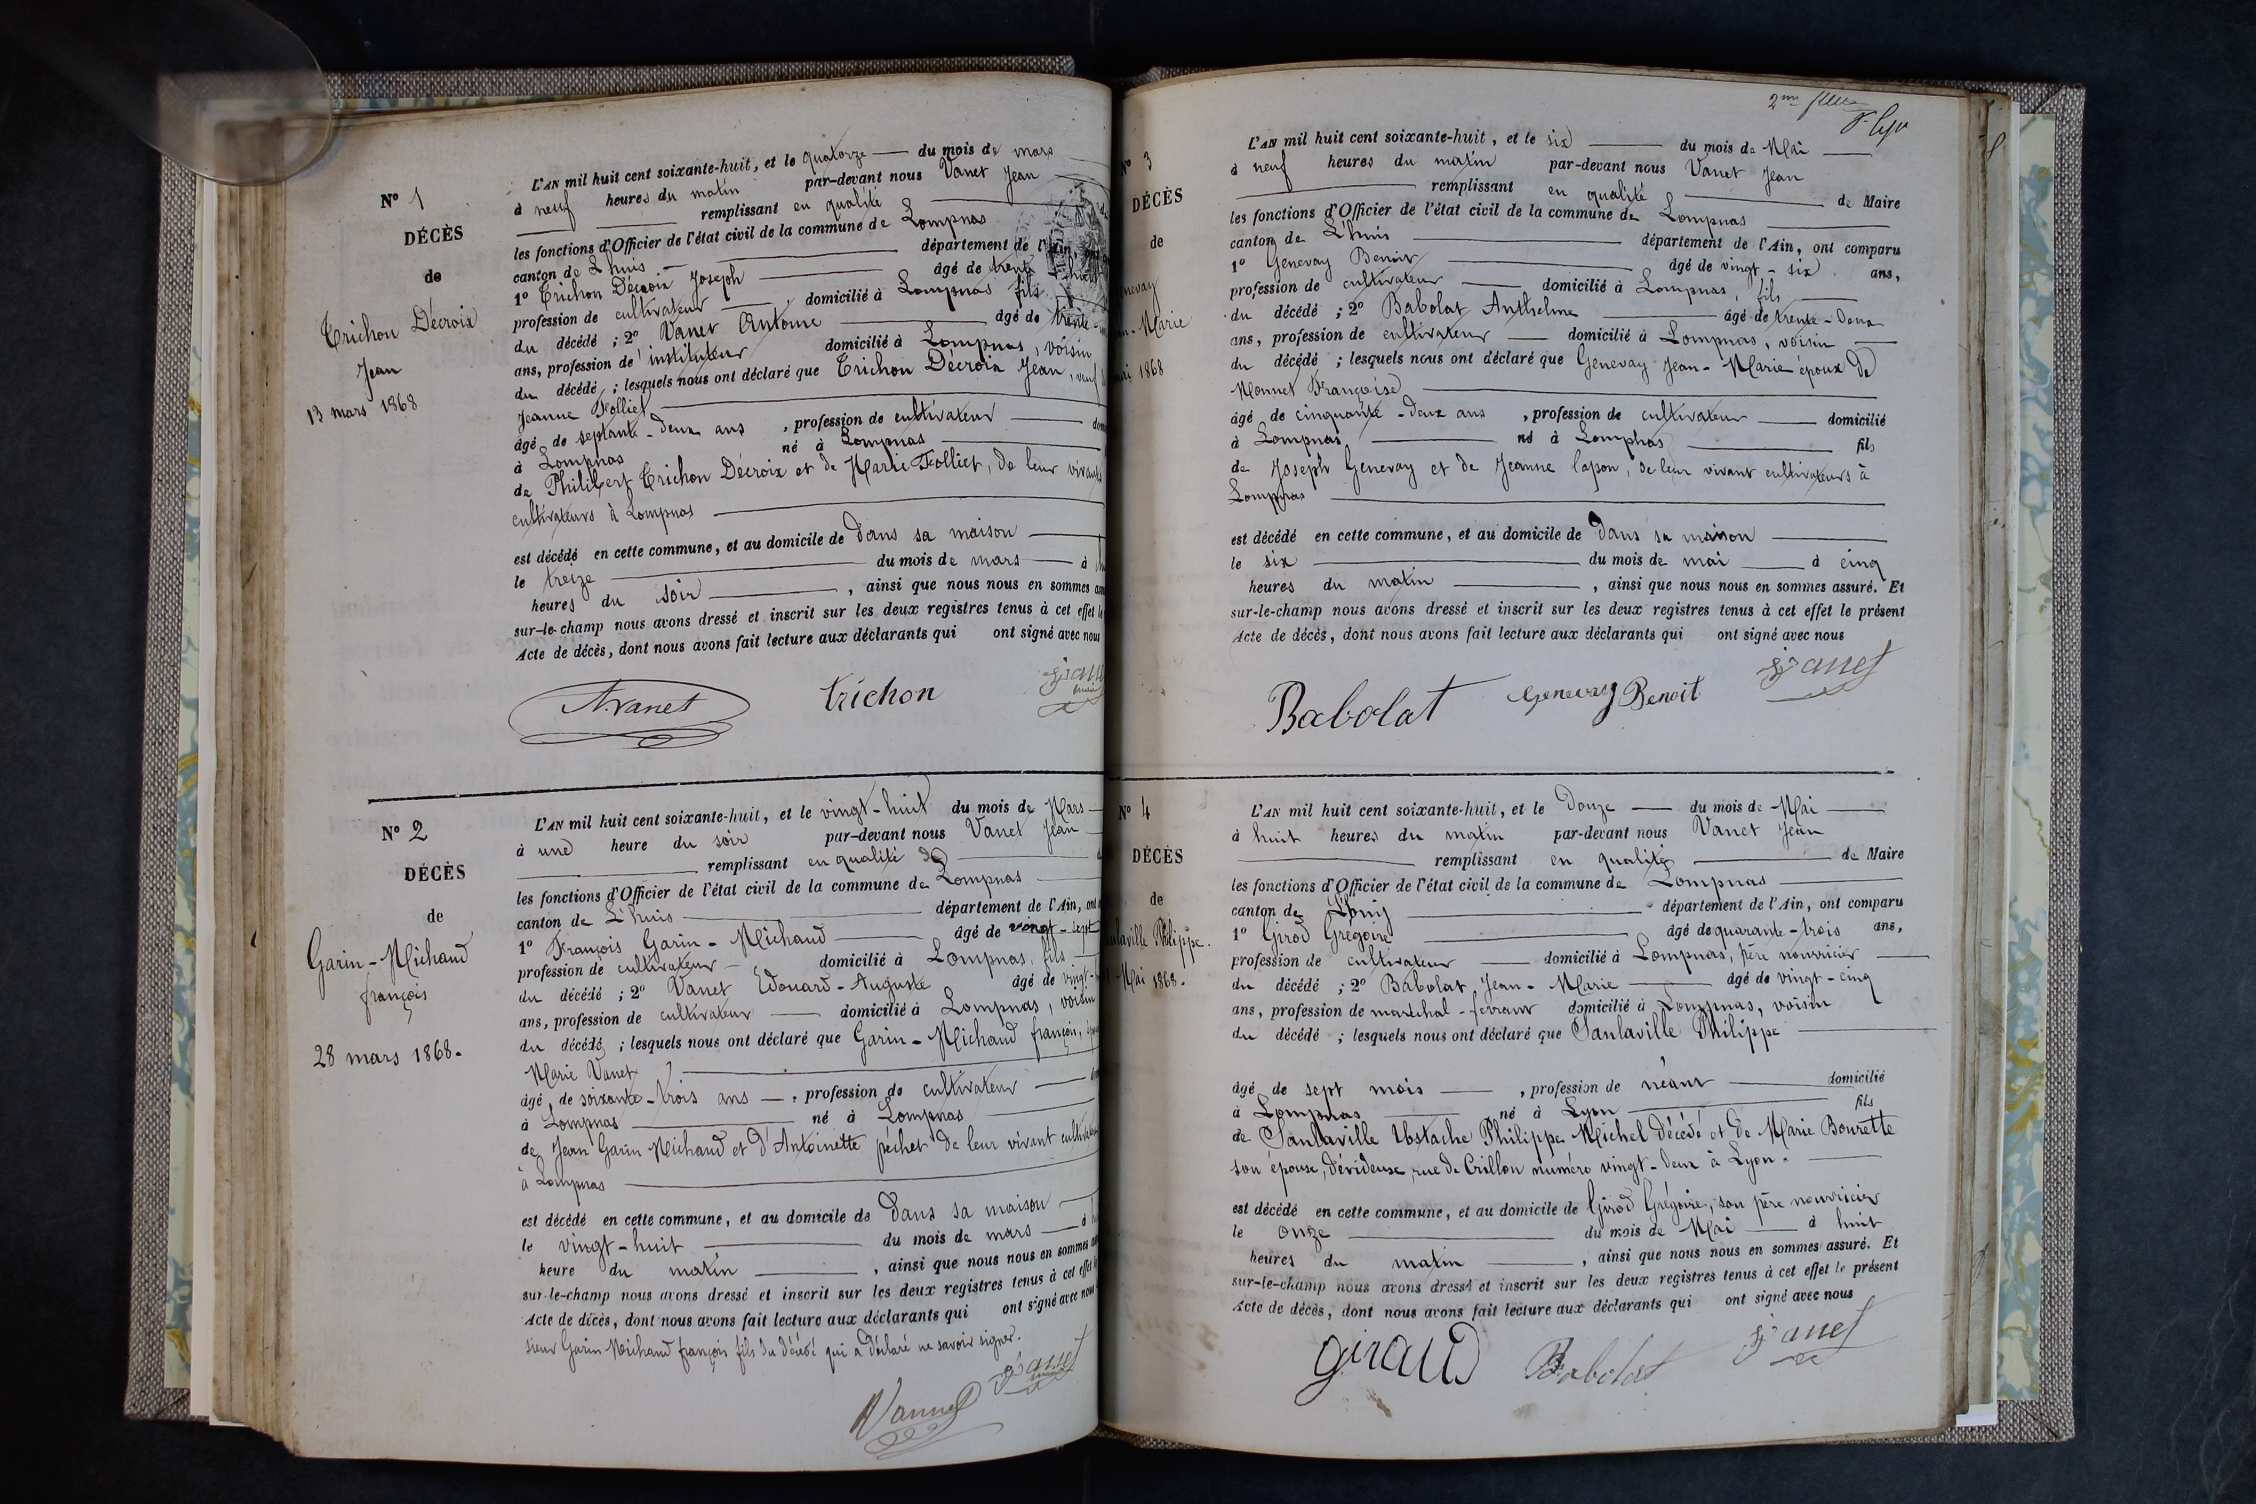 N° 1
DÉCÈS
de
Trichon Décroix
Jean
13 mars 1868
L'AN mil huit cent soixante-huit, et le quatorze du mois de mars
à neuf heures du matin par-devant nous Vanet Jean
remplissant en qualité
les fonctions d'Officier de l'état civil de la commune de Lompnas
canton de L'huis département de l'Ain,
1° Trichon Décroix Joseph âgé de trente
profession de cultivateur domicilié à Lompnas fils
du décédé ; 2° Vanet Antoine âgé de trente
ans, profession de instituteur domicilié à Lompnas, voisin
du décédé ; lesquels nous ont déclaré que Trichon Décroix Jean, veuf
Jeanne Folliet
âgé de septante-deux ans, profession de cultivateur
à Lompnas né à Lompnas
de Philibert Trichon Décroix et de Marie Folliet, de leur vivants
cultivateurs à Lompnas
est décédé en cette commune, et au domicile de Dans sa maison
le treize du mois de mars à
heures du soir, ainsi que nous nous en sommes
sur-le-champ nous avons dressé et inscrit sur les deux registres tenus à cet effet le
Acte de décès, dont nous avons fait lecture aux déclarants qui ont signé avec nous
A. vanet trichon
N° 2
DÉCÈS
de
Garin-Michaud
françois
28 mars 1868.
L'AN mil huit cent soixante-huit, et le vingt-huit du mois de Mars
à une heure du soir par-devant nous Vanet Jean
remplissant en qualité de
les fonctions d'Officier de l'état civil de la commune de Lompnas
canton de L'huis département de l'Ain, ont
1° François Garin-Michaud âgé de vingt-sept
profession de cultivateur domicilié à Lompnas, fils
du décédé ; 2° Vanet Edouard-Auguste âgé de vingt-
ans, profession de cultivateur domicilié à Lompnas, voisin
du décédé ; lesquels nous ont déclaré que Garin-Michaud françois,
Marie Vanet
âgé de soixante-trois ans, profession de cultivateur
à Lompnas né à Lompnas
de Jean Garin-Michaud et d'Antoinette péchet de leur vivant
à Lompnas
est décédé en cette commune, et au domicile de Dans sa maison
le vingt-huit du mois de mars à
heure du matin, ainsi que nous nous en sommes
sur-le-champ nous avons dressé et inscrit sur les deux registres tenus à cet effet
Acte de décès, dont nous avons fait lecture aux déclarants qui ont signé avec nous
sieur Garin Michaud françois fils du décédé qui a déclaré ne savoir signer.
2me
N° 3
DÉCÈS
de
-Marie
1868
L'AN mil huit cent soixante-huit, et le six du mois de Mai
à neuf heures du matin par-devant nous Vanet Jean
remplissant en qualité de Maire
les fonctions d'Officier de l'état civil de la commune de Lompnas
canton de L'huis département de l'Ain, ont comparu
1° Genevay Benoit âgé de vingt-six ans,
profession de cultivateur domicilié à Lompnas, fils
du décédé ; 2° Babolat Anthelme âgé de trente-deux
ans, profession de cultivateur domicilié à Lompnas, voisin
du décédé ; lesquels nous ont déclaré que Genevay Jean-Marie époux de
Monnet Françoise
âgé de cinquante-deux ans, profession de cultivateur domicilié
à Lompnas né à Lompnas fils
de Joseph Genevay et de Jeanne lapon, de leur vivant cultivateurs à
Lompnas
est décédé en cette commune, et au domicile de Dans sa maison
le six du mois de mai à cinq
heures du matin, ainsi que nous nous en sommes assuré. Et
sur-le-champ nous avons dressé et inscrit sur les deux registres tenus à cet effet le présent
Acte de décès, dont nous avons fait lecture aux déclarants qui ont signé avec nous
Babolat Genevay Benoit Vanet
N° 4
DÉCÈS
de
Philippe.
Mai 1868.
L'AN mil huit cent soixante-huit, et le Douze du mois de Mai
à huit heures du matin par-devant nous Vanet Jean
remplissant en qualité de Maire
les fonctions d'Officier de l'état civil de la commune de Lompnas
canton de L'huis département de l'Ain, ont comparu
1° Girod Grégoire âgé de quarante-trois ans,
profession de cultivateur domicilié à Lompnas, père nourricier
du décédé ; 2° Babolat Jean-Marie âgé de vingt-cinq
ans, profession de maréchal-ferrant domicilié à Lompnas, voisin
du décédé ; lesquels nous ont déclaré que Sanlaville Philippe
âgé de sept mois, profession de néant domicilié
à Lompnas né à Lyon fils
de Sanlaville Ustache Philippe Michel décédé et de Marie Bourette
son épouse, dévideuse, rue de Crillon numéro vingt-deux à Lyon.
est décédé en cette commune, et au domicile de Girod Grégoire, son père nourricier
le onze du mois de Mai à huit
heures du matin, ainsi que nous nous en sommes assuré. Et
sur-le-champ nous avons dressé et inscrit sur les deux registres tenus à cet effet le présent
Acte de décès, dont nous avons fait lecture aux déclarants qui ont signé avec nous
giraud Babolat Vanet